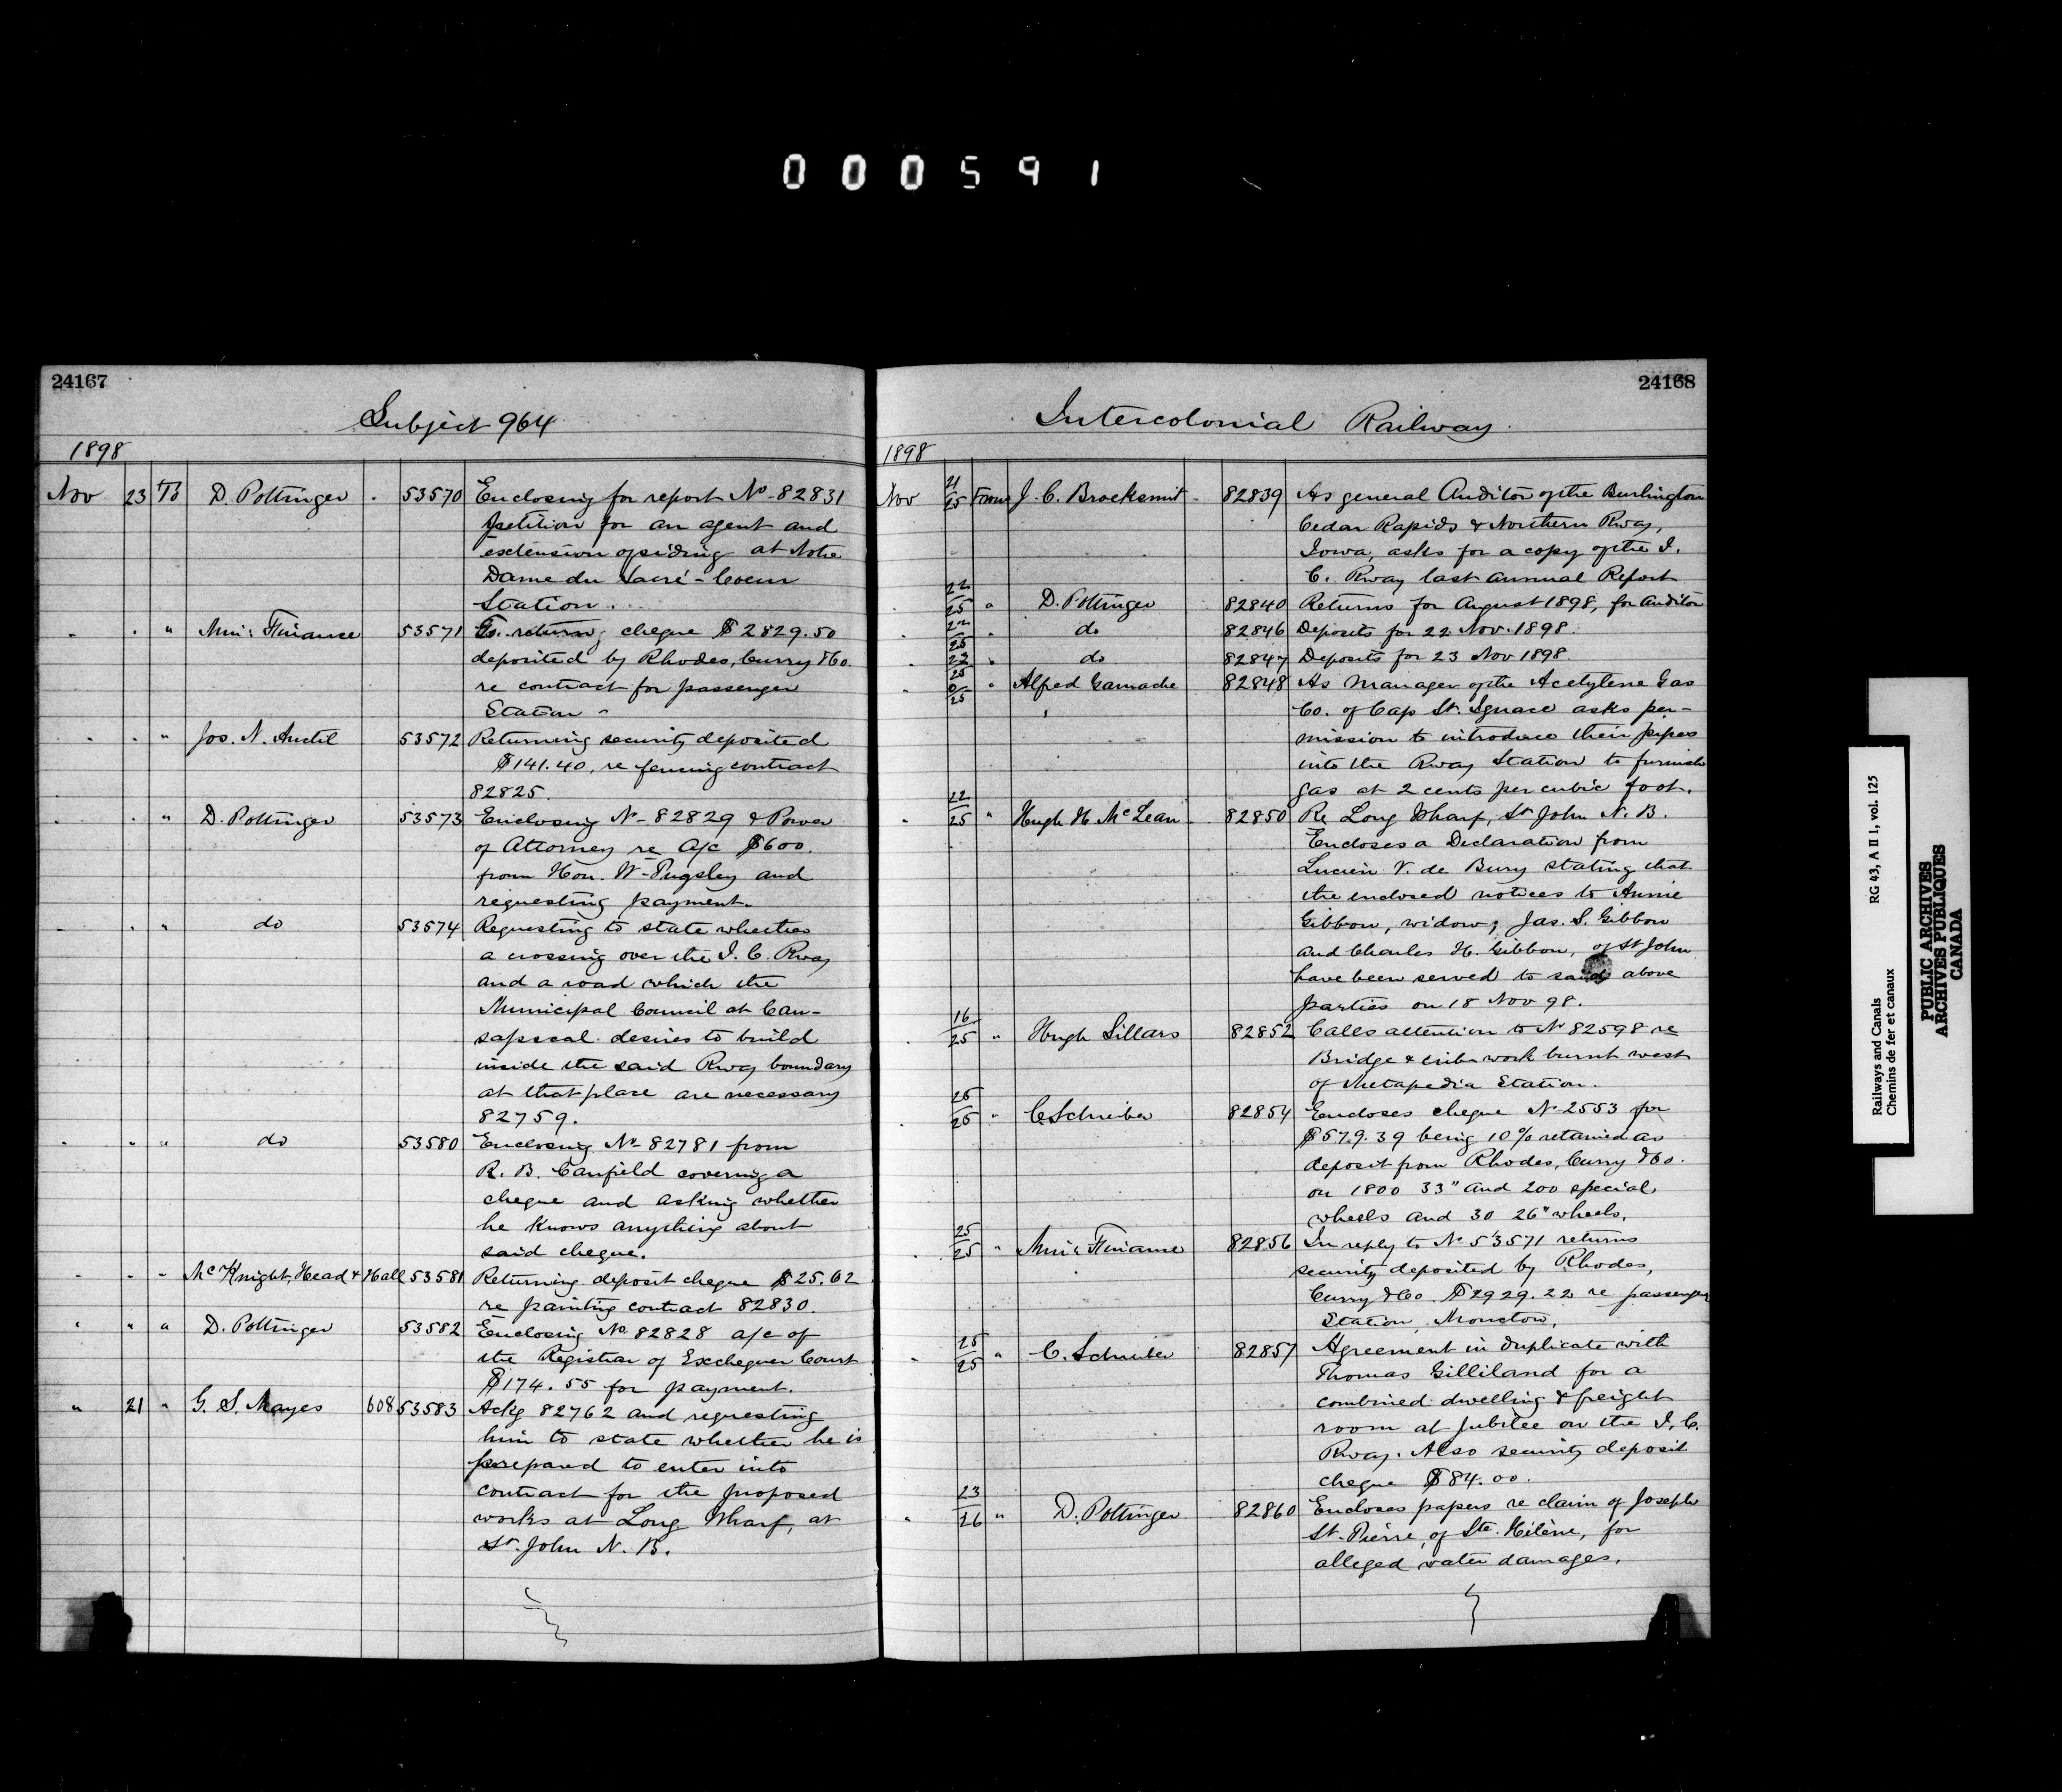 000591
24167
Subject 964
1898
Nov 23 To D. Pottinger . 53570 Enclosing for report No 82831
petition for an agent and
extension of siding at Notre
Dame du Sacré-Coeur
Station.
" . " Min: Finance 53571 To return, cheque $2829.50
deposited by Rhodes, Curry & Co.
re contract for passenger
Station -
" . " Jos. N. Anctil 53572 Returning security deposited
$141.40, re fencing contract
82825.
" . " D. Pottinger 53573 Enclosing No 82829 & Power
of Attorney re a/c $600.
from Hon. Wm Pugsley and
requesting payment.
" . " do 53574 Requesting to state whether
a crossing over the I. C. Rway
and a road which the
Municipal Council at Cau-
sapscal desires to build
inside the said Rway boundary
at that place are necessary
82759.
" " " do 53580 Enclosing No 82781 from
R. B. Canfield covering a
cheque and asking whether
he knows anything about
said cheque.
" " " McKnight, Head & Hall 53581 Returning deposit cheque $25.62
re painting contract 82830.
" " " D. Pottinger 53582 Enclosing No 82828 a/c of
the Registrar of Exchequer Court
$174.55 for payment.
" 21 " G. S. Mayes 608 53583 Ackg 82762 and requesting
him to state whether he is
prepared to enter into
contract for the proposed
works at Long Wharf, at
St. John N. B.
24168
Intercolonial Railway.
1898
Nov 21/25 From J. C. Brocksmit - 82839 As general Auditor of the Burlington
Cedar Rapids & Northern Rway,
Iowa, asks for a copy of the I.
C. Rway last annual Report
. 22/25 " D. Pottinger 82840 Returns for August 1898, for Auditor
. 22/25 " do 82846 Deposits for 22 Nov. 1898.
. 23/25 " do 82847 Deposits for 23 Nov 1898.
. 0/25 " Alfred Gamache 82848 As Manager of the Acetylene Gas
Co. of Cap St. Ignace asks per-
mission to introduce their pipes
into the Rway Station to furnish
gas at 2 cents per cubic foot.
" 22/25 " Hugh H. McLean 82850 Re Long Wharf, St John N. B.
Encloses a Declaration from
Lucien V. de Bury stating that
the enclosed notices to Annie
Gibbon, widow, Jas. S. Gibbon
and Charles H. Gibbon, of St John
have been served to said above
parties on 18 Nov 98.
. 16/25 " Hugh Sillars 82852 Calls attention to No 82598 re
Bridge & crib work burnt west
of Metapedia Station.
. 25/25 " C. Schreiber 82854 Encloses cheque No 2553 for
$579.39 being 10% retained as
deposit from Rhodes, Curry & Co.
on 1800 33" and 200 special
wheels and 30 26" wheels.
. 25/25 " Min: Finance 82856 In reply to No 53571 returns
security deposited by Rhodes,
Curry & Co. $2929.22 re passenger
Station, Moncton,
. 25/25 " C. Schreiber 82857 Agreement in duplicate with
Thomas Gilliland for a
combined dwelling & freight
room at Jubilee on the I. C.
Rway. Also security deposit
cheque $84.00.
. 23/26 " D. Pottinger 82860 Encloses papers re claim of Joseph
St. Pierre, of Ste. Hélène, for
alleged water damages.
Railways and Canals RG 43, A II 1, vol. 125
Chemins de fer et canaux
PUBLIC ARCHIVES
ARCHIVES PUBLIQUES
CANADA